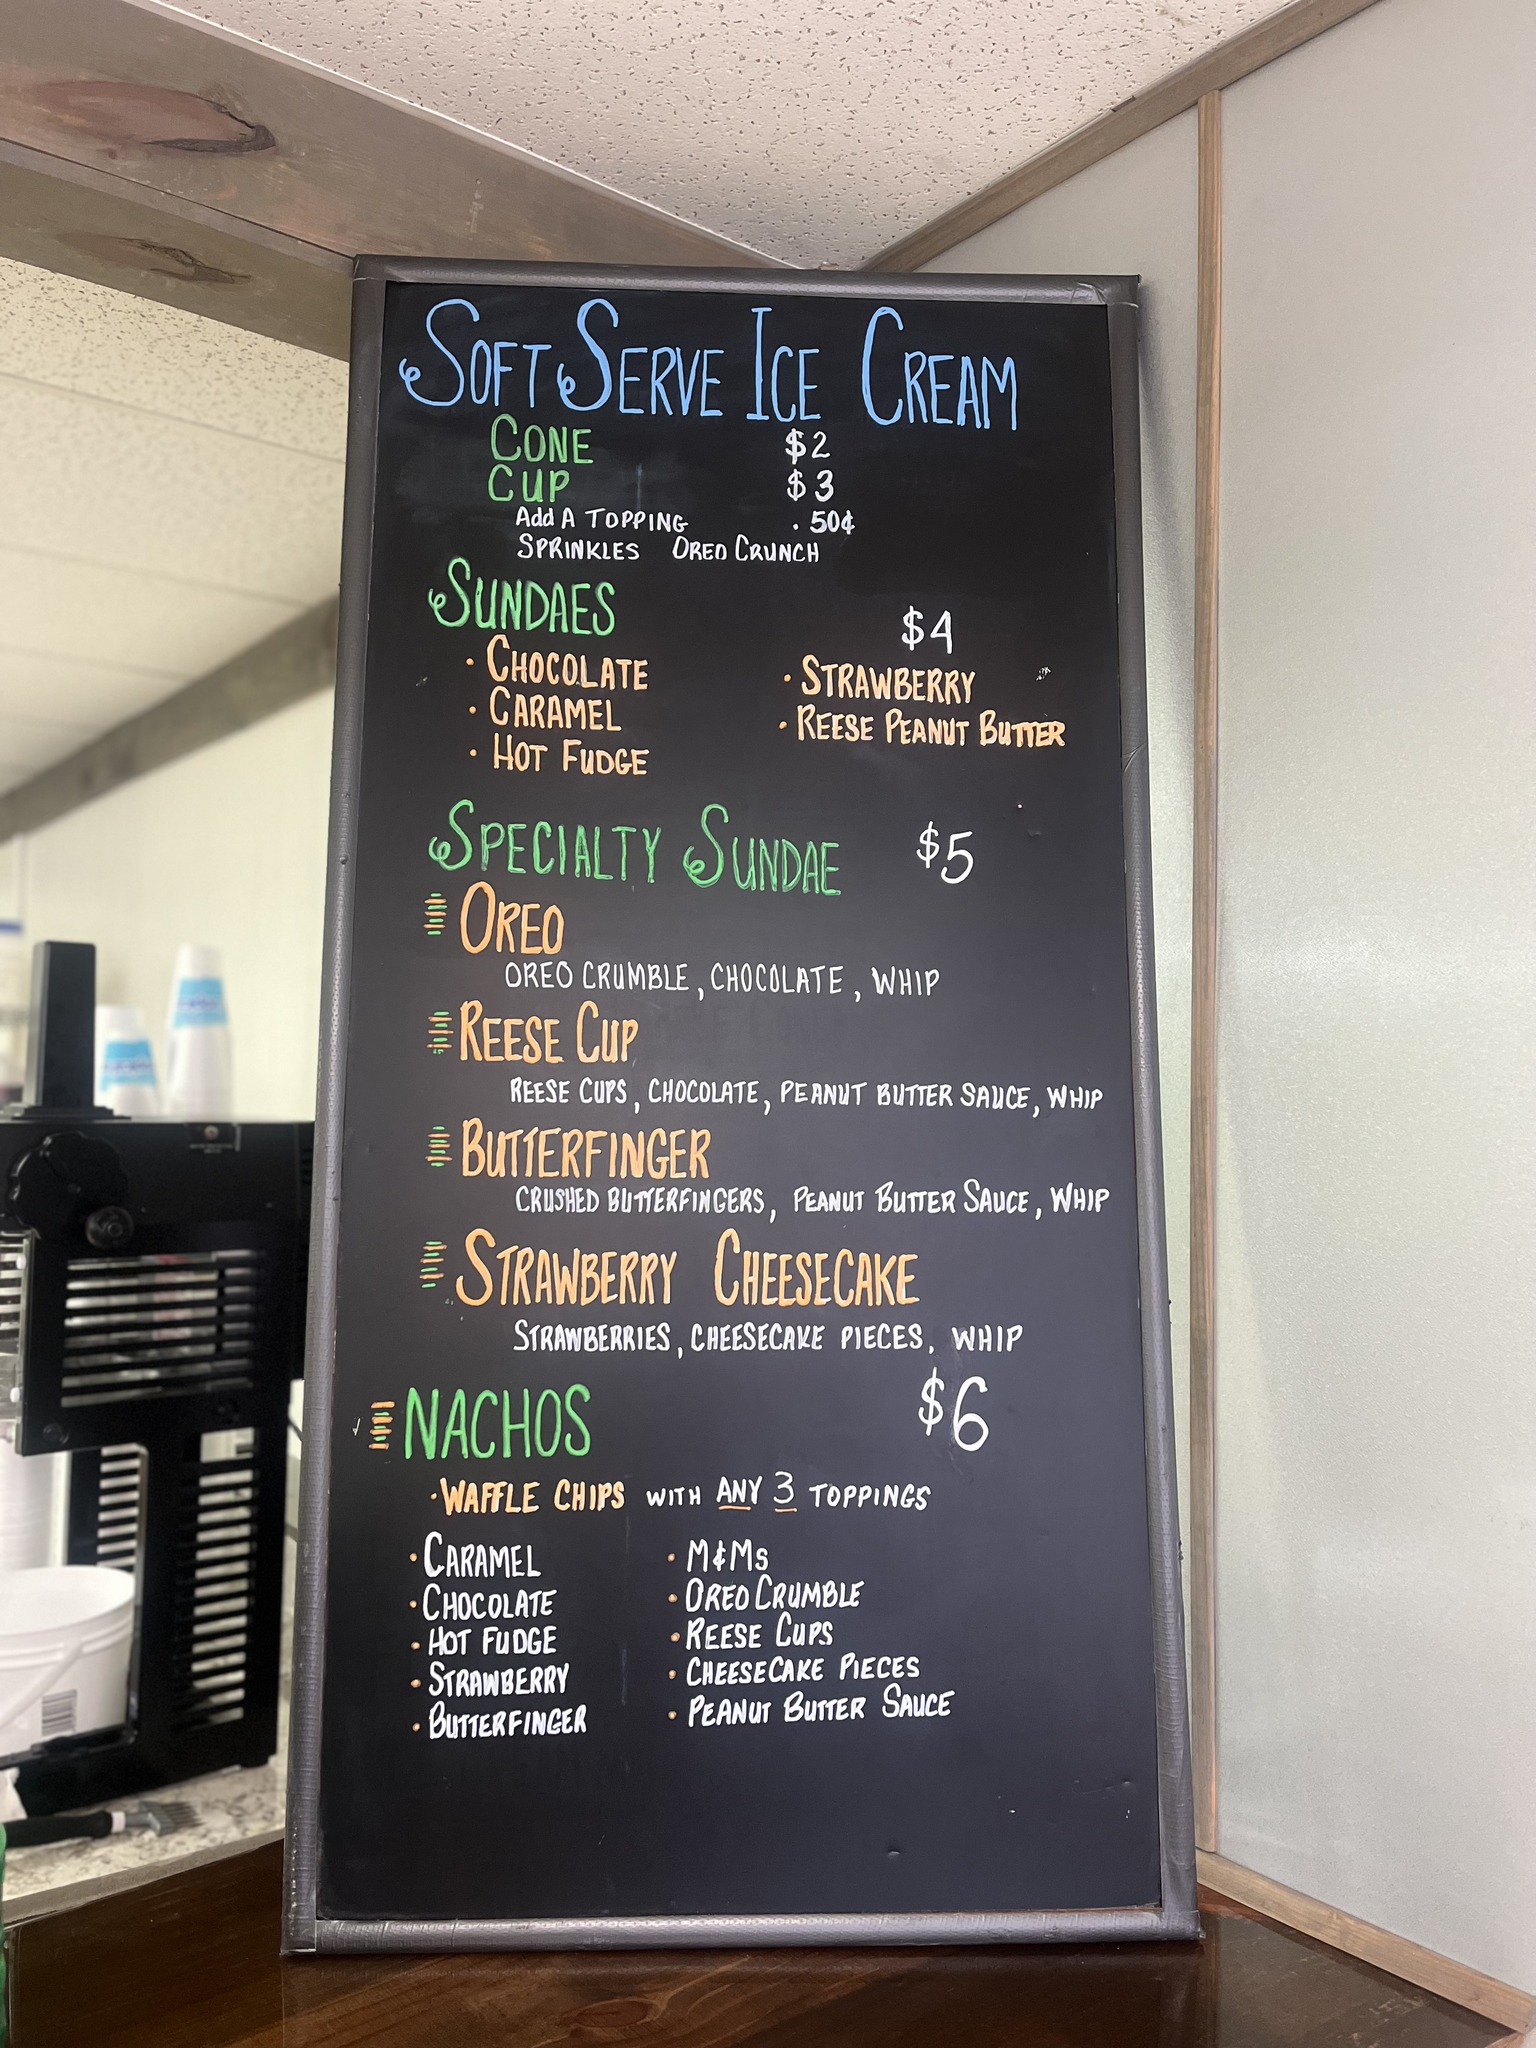 SOFT SERVE ICE CREAM
CONE $2
CUP $3
Add A TOPPING .50¢
SPRINKLES OREO CRUNCH
SUNDAES $4
· CHOCOLATE · STRAWBERRY
· CARAMEL · REESE PEANUT BUTTER
· HOT FUDGE
SPECIALTY SUNDAE $5
OREO
OREO CRUMBLE, CHOCOLATE, WHIP
REESE CUP
REESE CUPS, CHOCOLATE, PEANUT BUTTER SAUCE, WHIP
BUTTERFINGER
CRUSHED BUTTERFINGERS, PEANUT BUTTER SAUCE, WHIP
STRAWBERRY CHEESECAKE
STRAWBERRIES, CHEESECAKE PIECES, WHIP
NACHOS $6
· WAFFLE CHIPS WITH ANY 3 TOPPINGS
· CARAMEL · M&Ms
· CHOCOLATE · OREO CRUMBLE
· HOT FUDGE · REESE CUPS
· STRAWBERRY · CHEESECAKE PIECES
· BUTTERFINGER · PEANUT BUTTER SAUCE